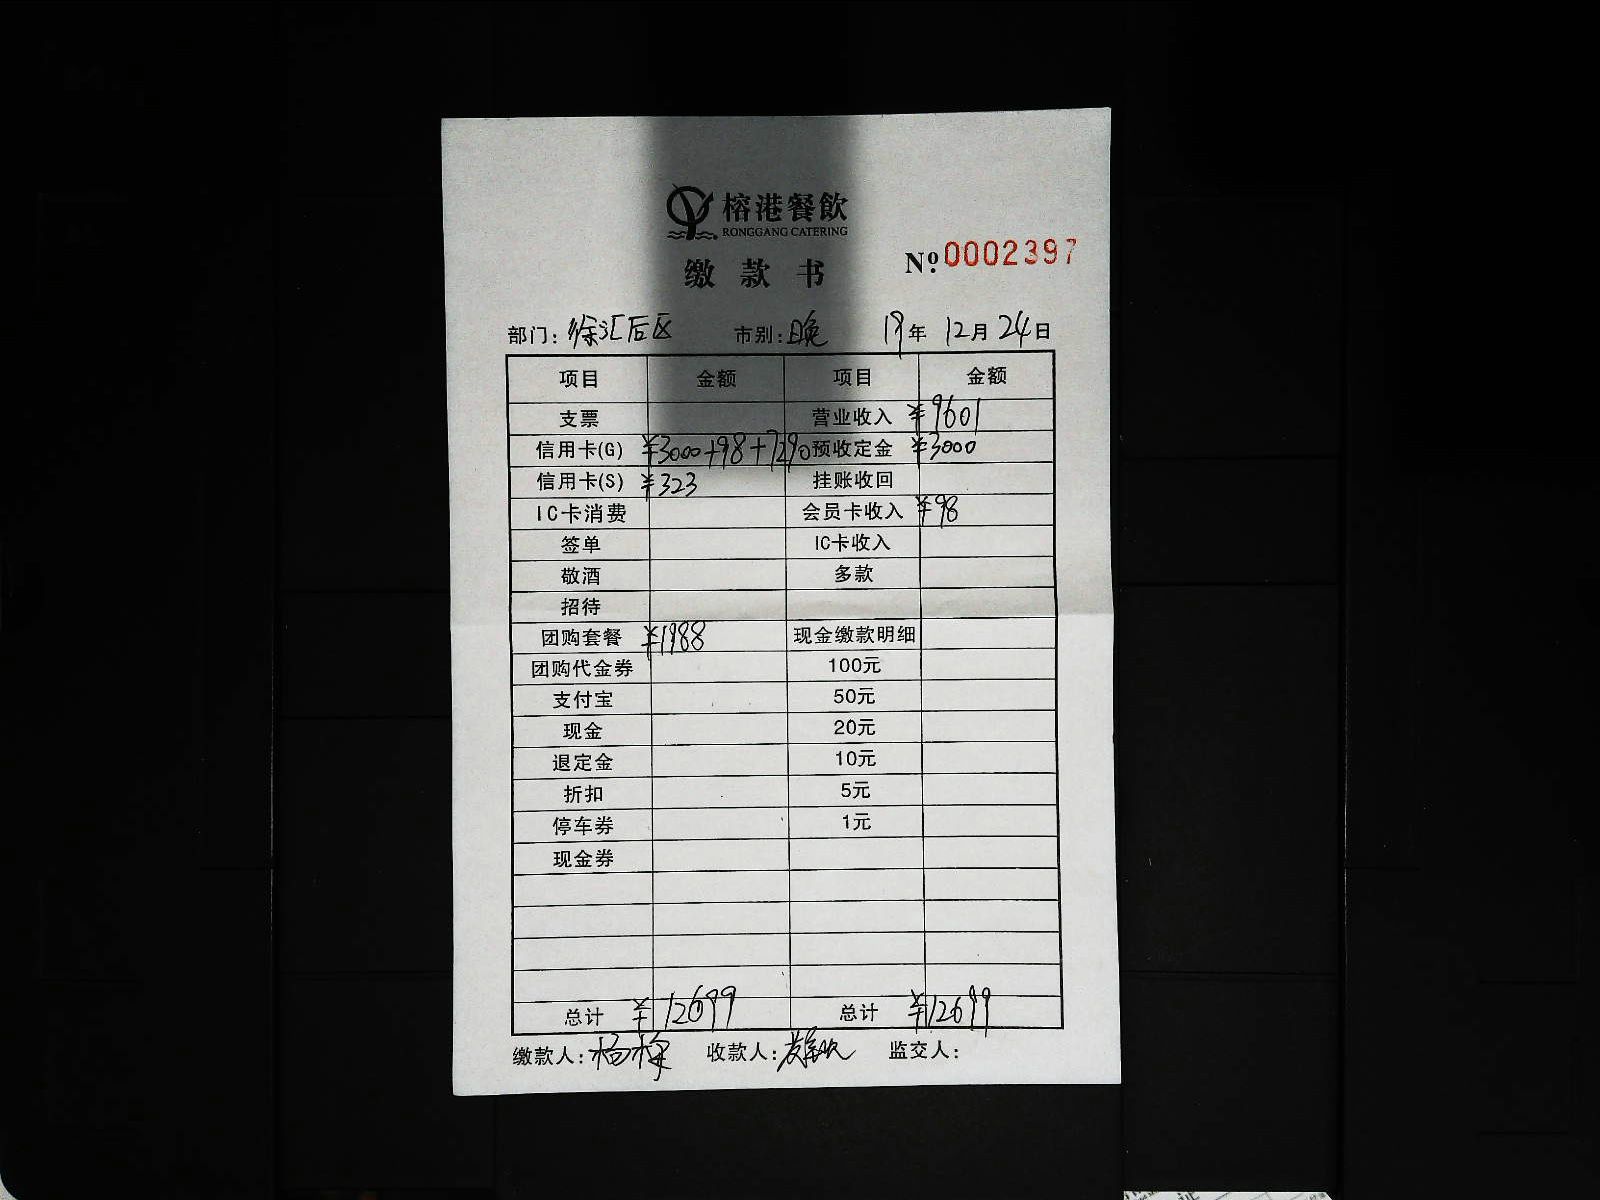 榕港餐飲
RONGGANG CATERING
缴款书
Nº 0002397
部门:徐汇后区 市别:晚 19年 12月 24日
项目 金额 项目 金额
支票 营业收入 ¥9601
信用卡(G) ¥3000+98+7290 预收定金 ¥3000
信用卡(S) ¥323 挂账收回
IC卡消费 会员卡收入 ¥98
签单 IC卡收入
敬酒 多款
招待
团购套餐 ¥1988 现金缴款明细
团购代金券 100元
支付宝 50元
现金 20元
退定金 10元
折扣 5元
停车券 1元
现金券
总计 ¥12699 总计 ¥12699
缴款人:杨梅 收款人: 监交人: